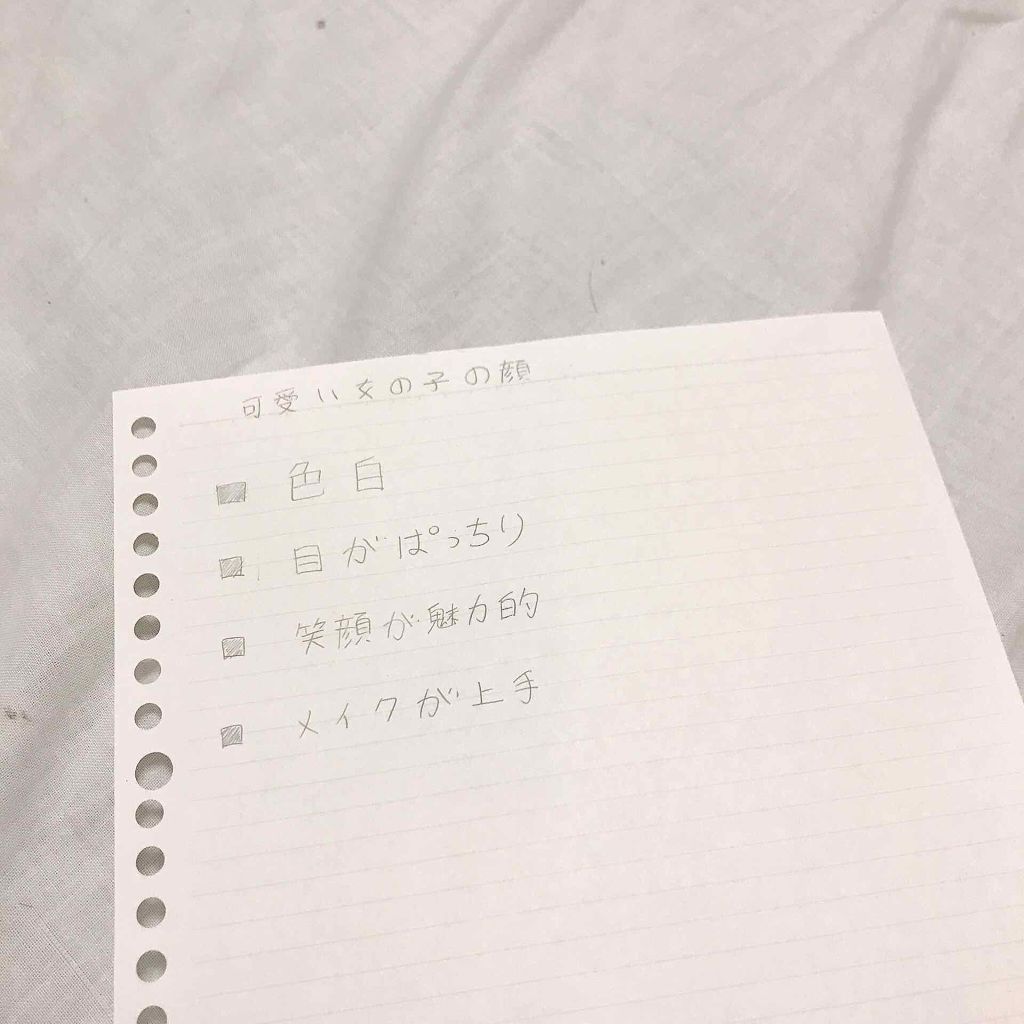 可愛い女の子の顔
■ 色白
■ 目がぱっちり
■ 笑顔が魅力的
■ メイクが上手